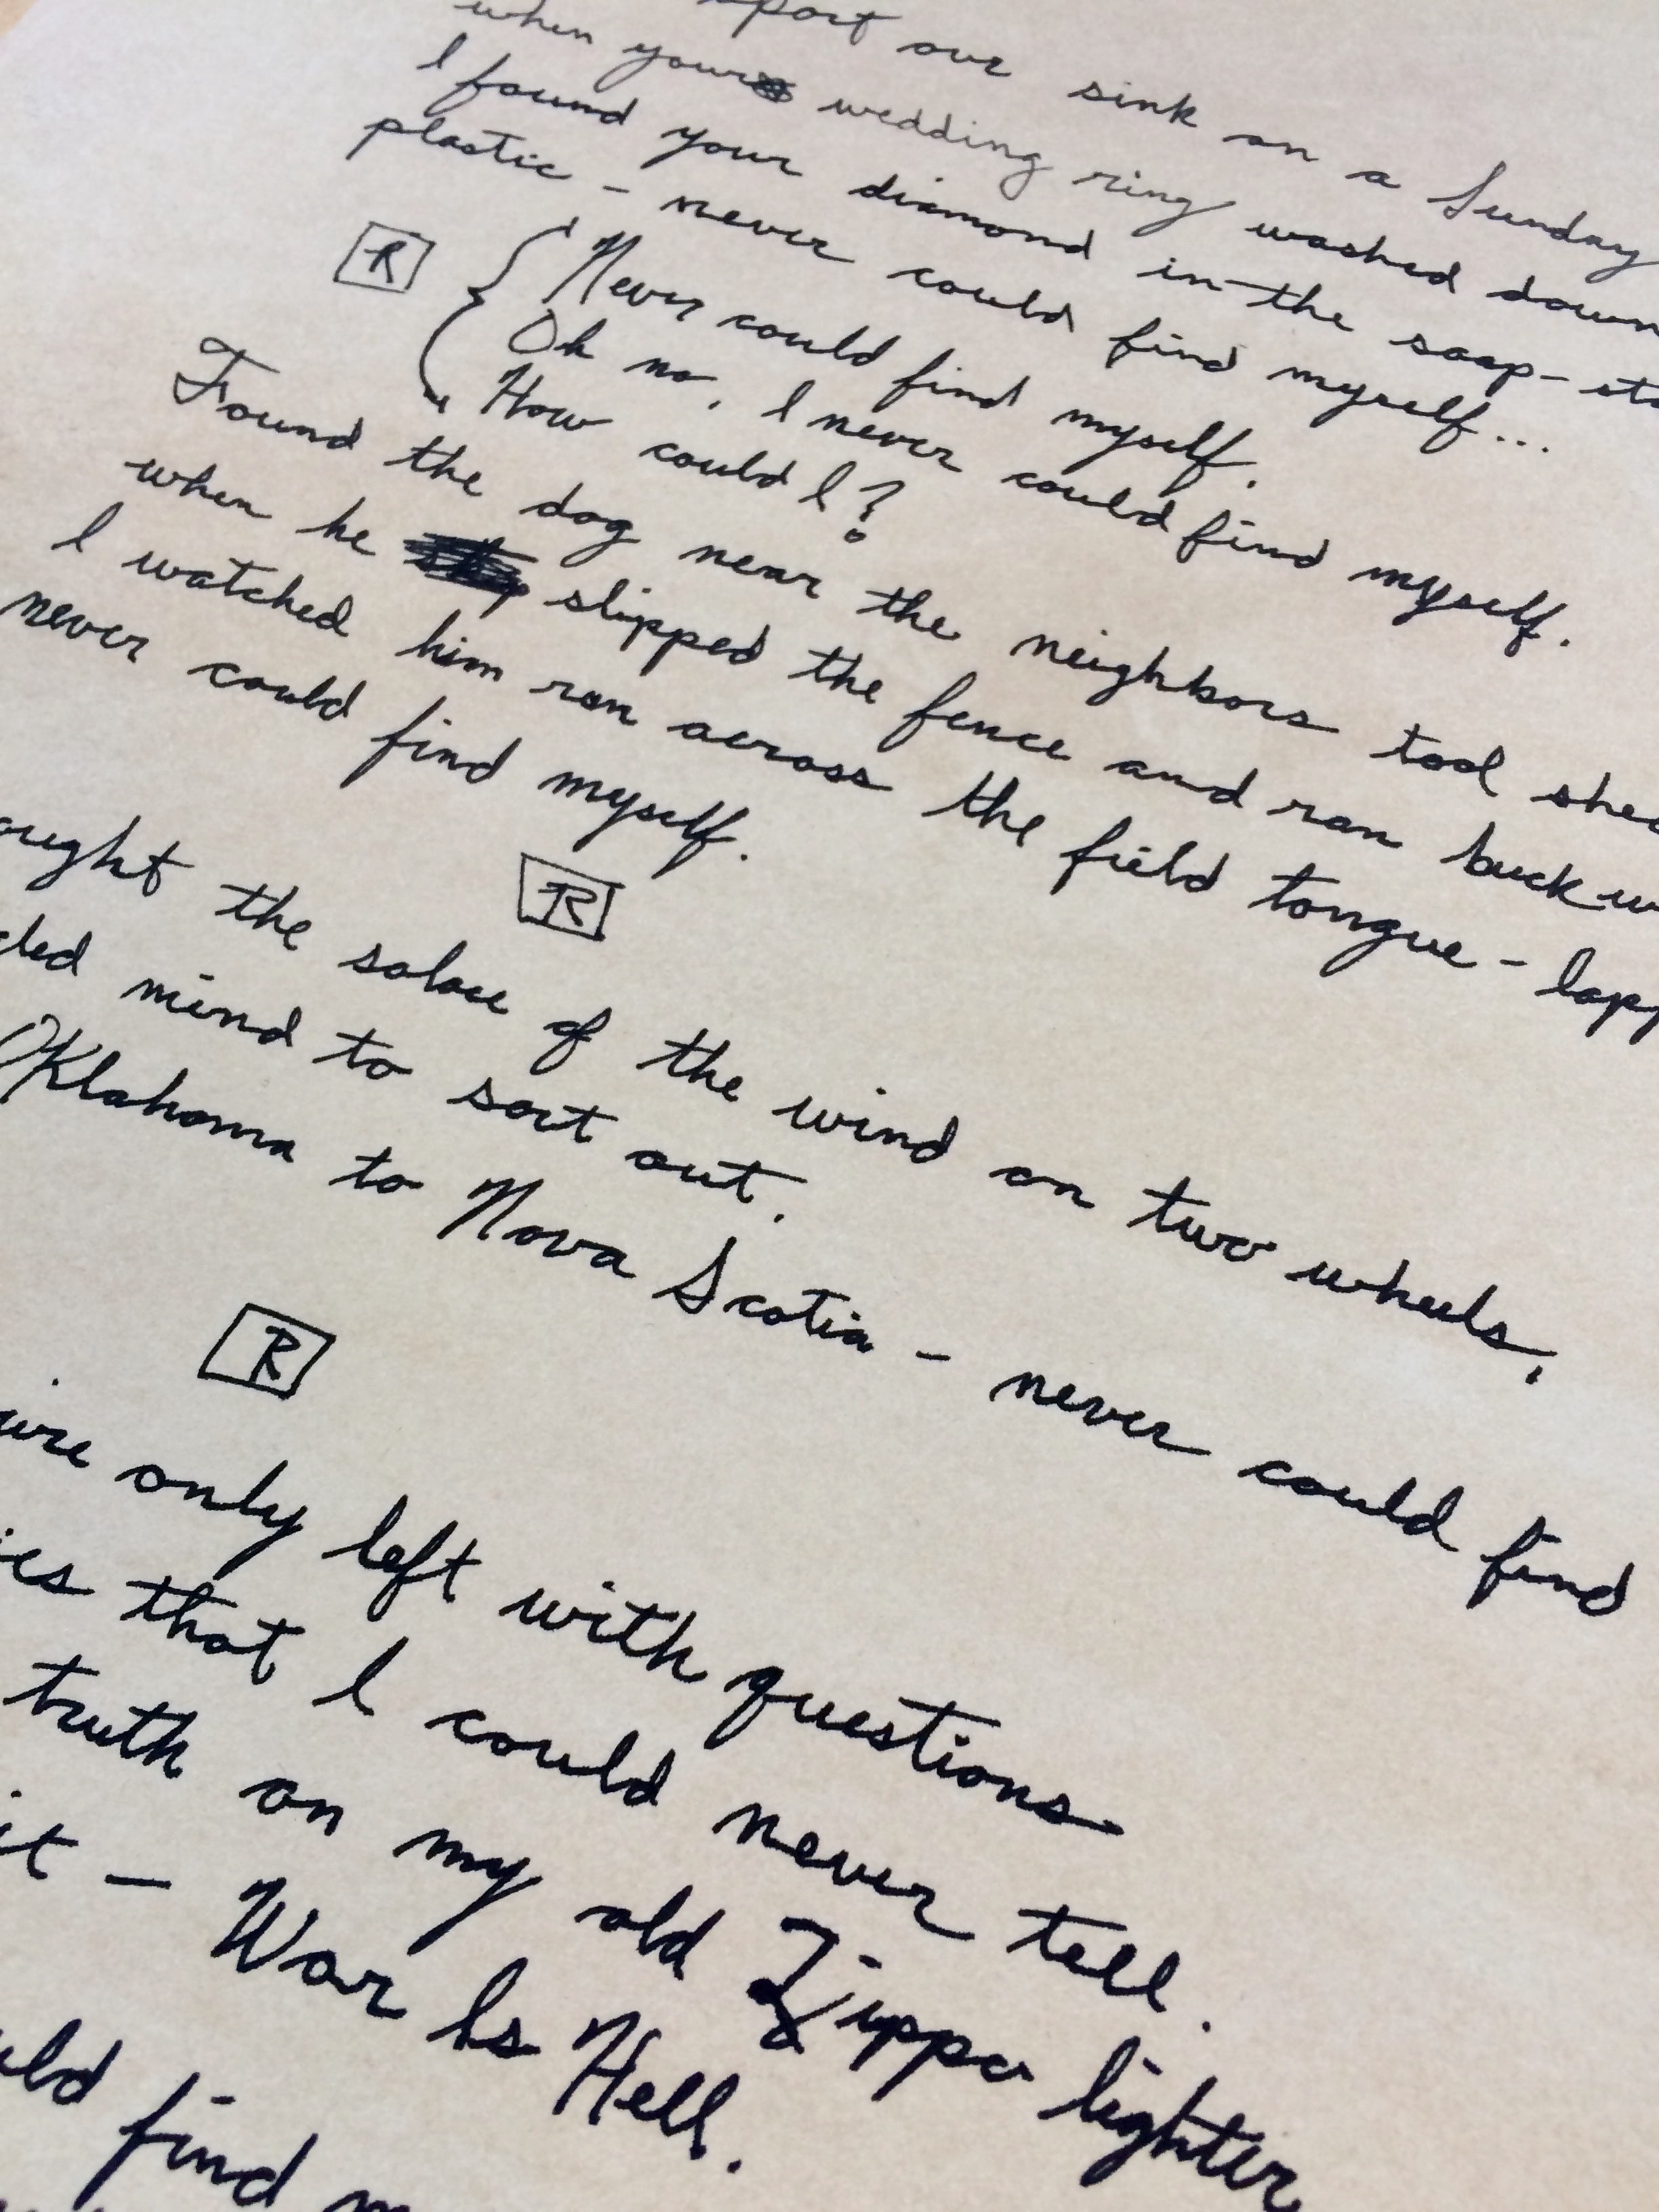 our sink on a Sunday
when your wedding ring washed down
I found your diamond in the soap-
plastic - never could find myself...
R Never could find myself.
Oh no, I never could find myself.
How could I?
Found the dog near the neighbors tool
when he slipped the fence and ran buck
I watched him run across the field tongue-
never could find myself.
R
the solace of the wind on two wheels,
mind to sort out.
Oklahoma to Nova Scotia - never could find
R
only left with questions
that I could never tell.
truth on my old Zippo lighter
it - War Is Hell.
find